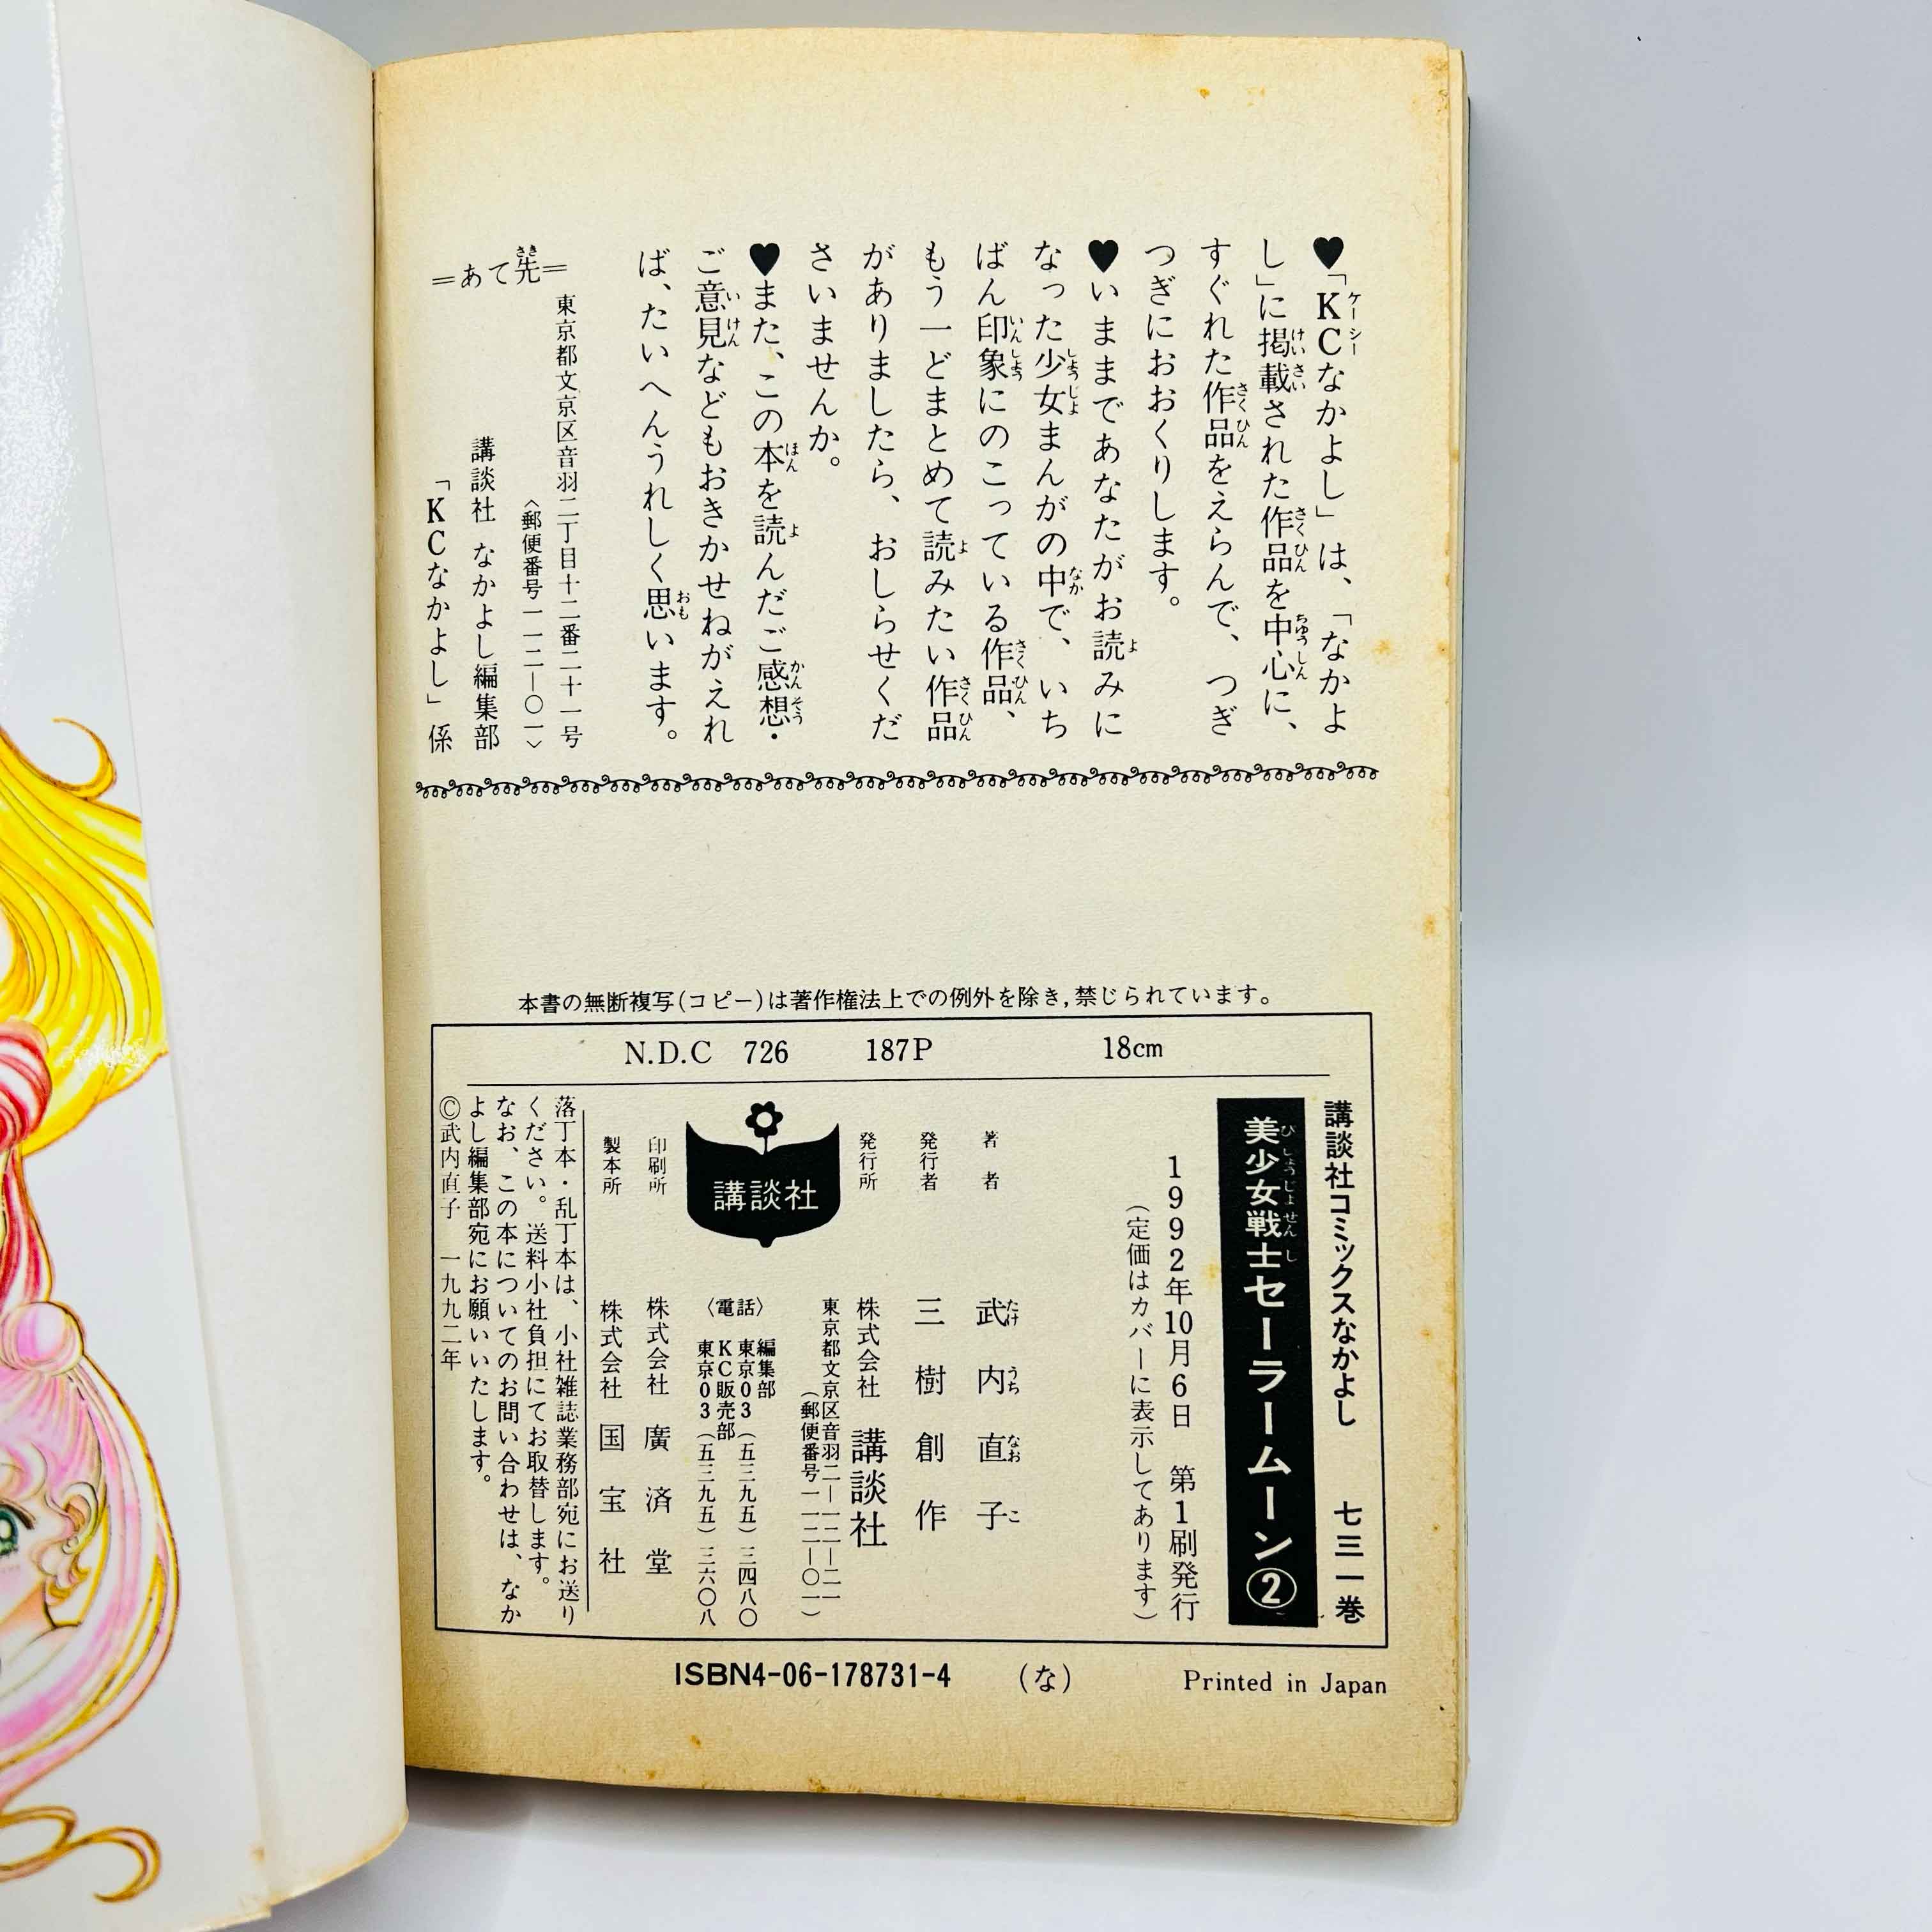 ♥「KCなかよし」は、「なかよ
し」に掲載された作品を中心に、
すぐれた作品をえらんで、つぎ
つぎにおおくりします。
♥いままであなたがお読みに
なった少女まんがの中で、いち
ばん印象にのこっている作品、
もう一どまとめて読みたい作品
がありましたら、おしらせくだ
さいませんか。
♥また、この本を読んだご感想・
ご意見などもおきかせねがえれ
ば、たいへんうれしく思います。
=あて先=
東京都文京区音羽二丁目十二番二十一号
〈郵便番号一一二―〇一〉
講談社 なかよし編集部
「KCなかよし」係
本書の無断複写(コピー)は著作権法上での例外を除き,禁じられています。
N.D.C 726 187P 18cm
講談社コミックスなかよし 七三一巻
美少女戦士セーラームーン②
1992年10月6日 第1刷発行
(定価はカバーに表示してあります)
著者 武内直子
発行者 三樹創作
発行所 株式会社 講談社
東京都文京区音羽二―一二―二一
(郵便番号一一二―〇一)
〈電話〉 編集部
東京03(五三九五)三四八〇
KC販売部
東京03(五三九五)三六〇八
講談社
印刷所 株式会社 廣済堂
製本所 株式会社 国宝社
落丁本・乱丁本は、小社雑誌業務部宛にお送り
ください。送料小社負担にてお取替します。
なお、この本についてのお問い合わせは、なか
よし編集部宛にお願いいたします。
©武内直子 一九九二年
ISBN4-06-178731-4 (な) Printed in Japan